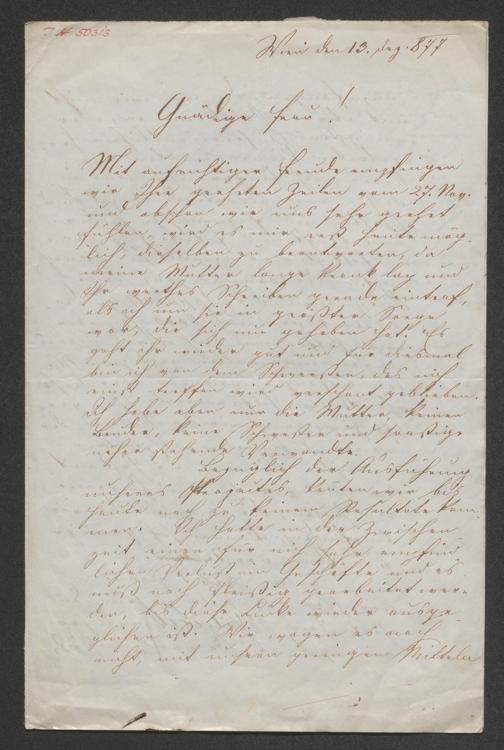 I N 50313
Wien den 13. Dez. 877
Gnädige Frau!
Mit aufrichtiger Freude empfingen
wir Ihre geehrten Zeilen vom 27. Nov.
und obschon wir uns sehr geehrt
fühlen, wird es mir erst heute mög-
lich, dieselben zu beantworten, da
meine Mutter lange krank lag und
Ihr werthes Schreiben gerade eintraf,
als ich um sie in größter Sorge
war, die sich nun gehoben hat. Es
geht ihr wieder gut und für diesmal
bin ich von dem Schwersten, das mich
einst treffen wird verschont geblieben.
Ich habe aber nur die Mutter, keinen
Bruder, keine Schwester und sonstige
näher stehende Verwandte.
Bezüglich der Ausführung
unseres Projectes, konnten wir bis
heute noch zu keinem Resultate kom-
men. Ich hatte in der Zwischen
zeit einen für mich sehr empfind
lichen Verlust im Geschäfte und es
muß noch fleißig gearbeitet wer-
den, bis diese Lücke wieder ausge-
glichen ist. Wir wagen es noch
nicht, mit unsern geringen Mitteln